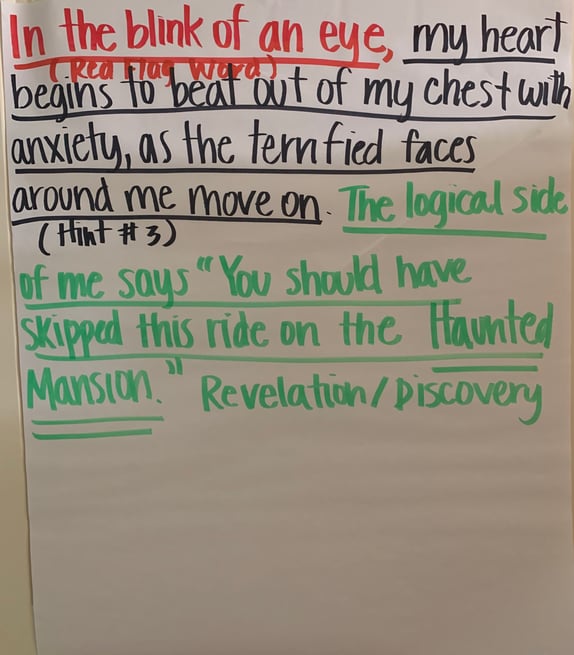 In the blink of an eye, my heart
(Red Flag Word)
begins to beat out of my chest with
anxiety, as the terrified faces
around me move on. The logical side
(Hint # 3)
of me says "You should have
skipped this ride on the Haunted
Mansion." Revelation/Discovery